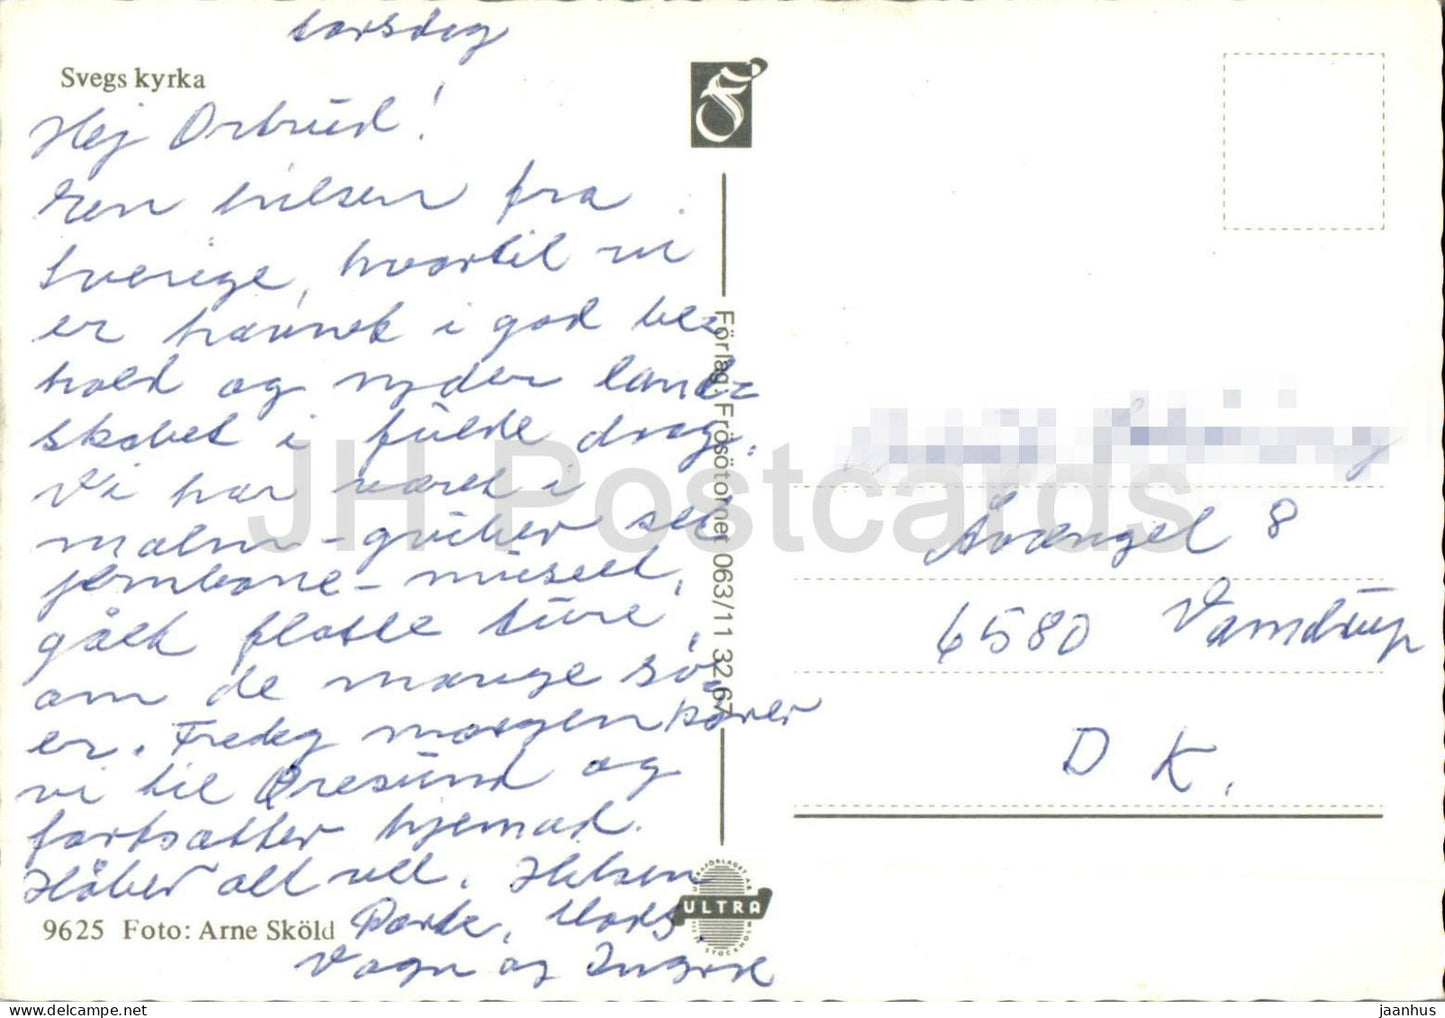 torsdag
Svegs kyrka
Hej Ortrud!
Een hilsen fra
Sverige, hvortil vi
er havnet i god be=
hold og nyder land=
skabet i fulde drag.
Vi har været i
malm-gruber set
jernbane-museet,
gået flotte ture,
om de mange sö
er. Fredag morgen kører
vi til Øresund og
fortsætter hjemad.
Håber alt vel. Hilsen
9625 Foto: Arne Sköld
Dorte, Mads,
Vagn og
Förlag: Frösötornet 063/11 32 67
ULTRA
STOCKHOLM
Åvænget 8
6580 Vamdrup
DK.
JH Postcards
jaanhus